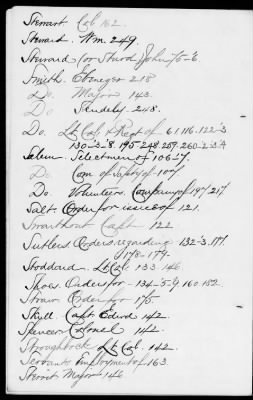 Stewart Col. 162
Steward. Wm. 249.
Steward (or Sturd) John 75-6
Smith. Ebenezer 218
Do. Major 143.
Do Sendely 248.
Do. Lt Col. & Reg't of 61.116.122-3
130-2-8. 195-248 259-260-2-3-4
Salem. Selectmen of 106-7.
Do Com of Safety of 107
Do. Volunteers. Company of 197 217
Salt. Order for issue of 121.
Swarthout Capt 122
Sutlers Orders regarding 132-3. 177.
178-179.
Stoddard. Lt Col. 133-146.
Shoes. Orders for - 134-5-9 160 182
Straw Order for 175
Skyll Capt Edwd 142.
Spencer Colonel 142.
Stroughbock Lt Col. 142.
Servants Employment of 163.
Sterrit Major 146